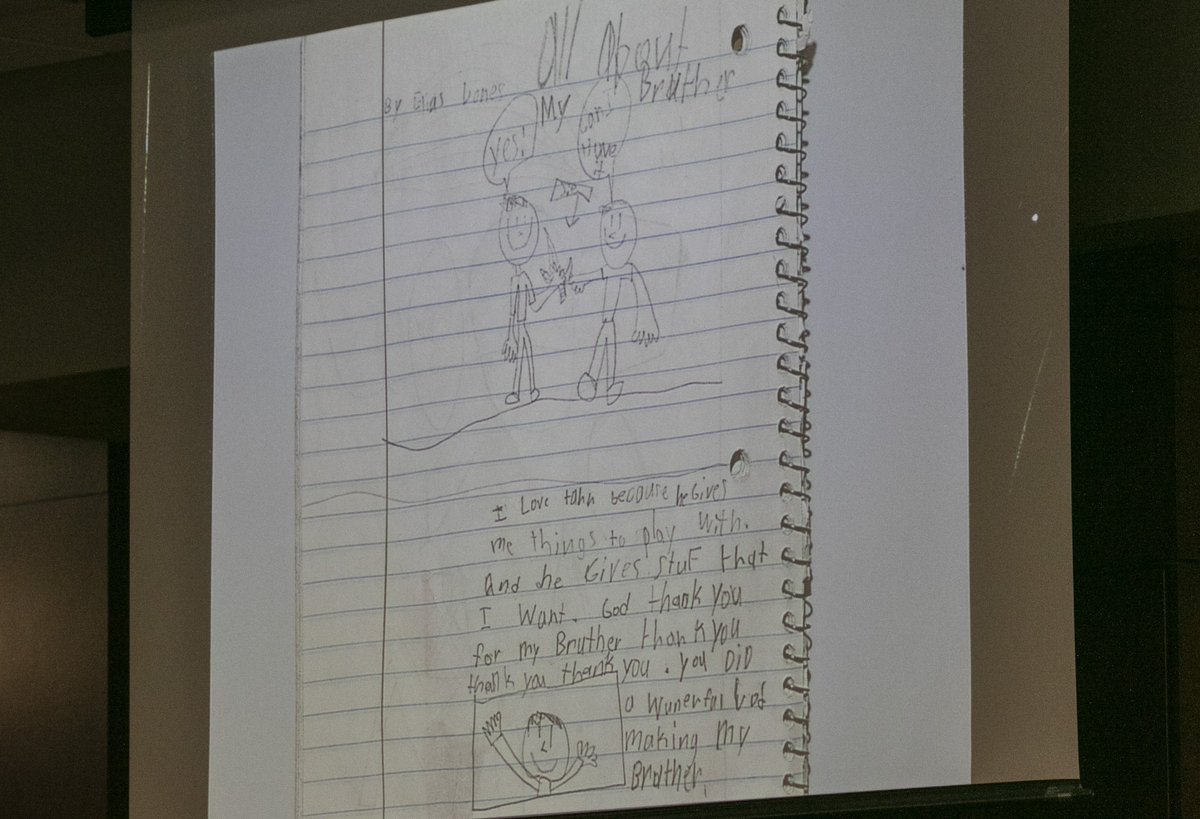 All About
By Elias Jones My Bruther
yes!
can I
Have
it
I Love tahn because he Gives
me things to play with.
and he Gives stuF that
I want. God thank you
for my Bruther thank you
thank you thank you. you DiD
a wunerful
making my
Bruther.